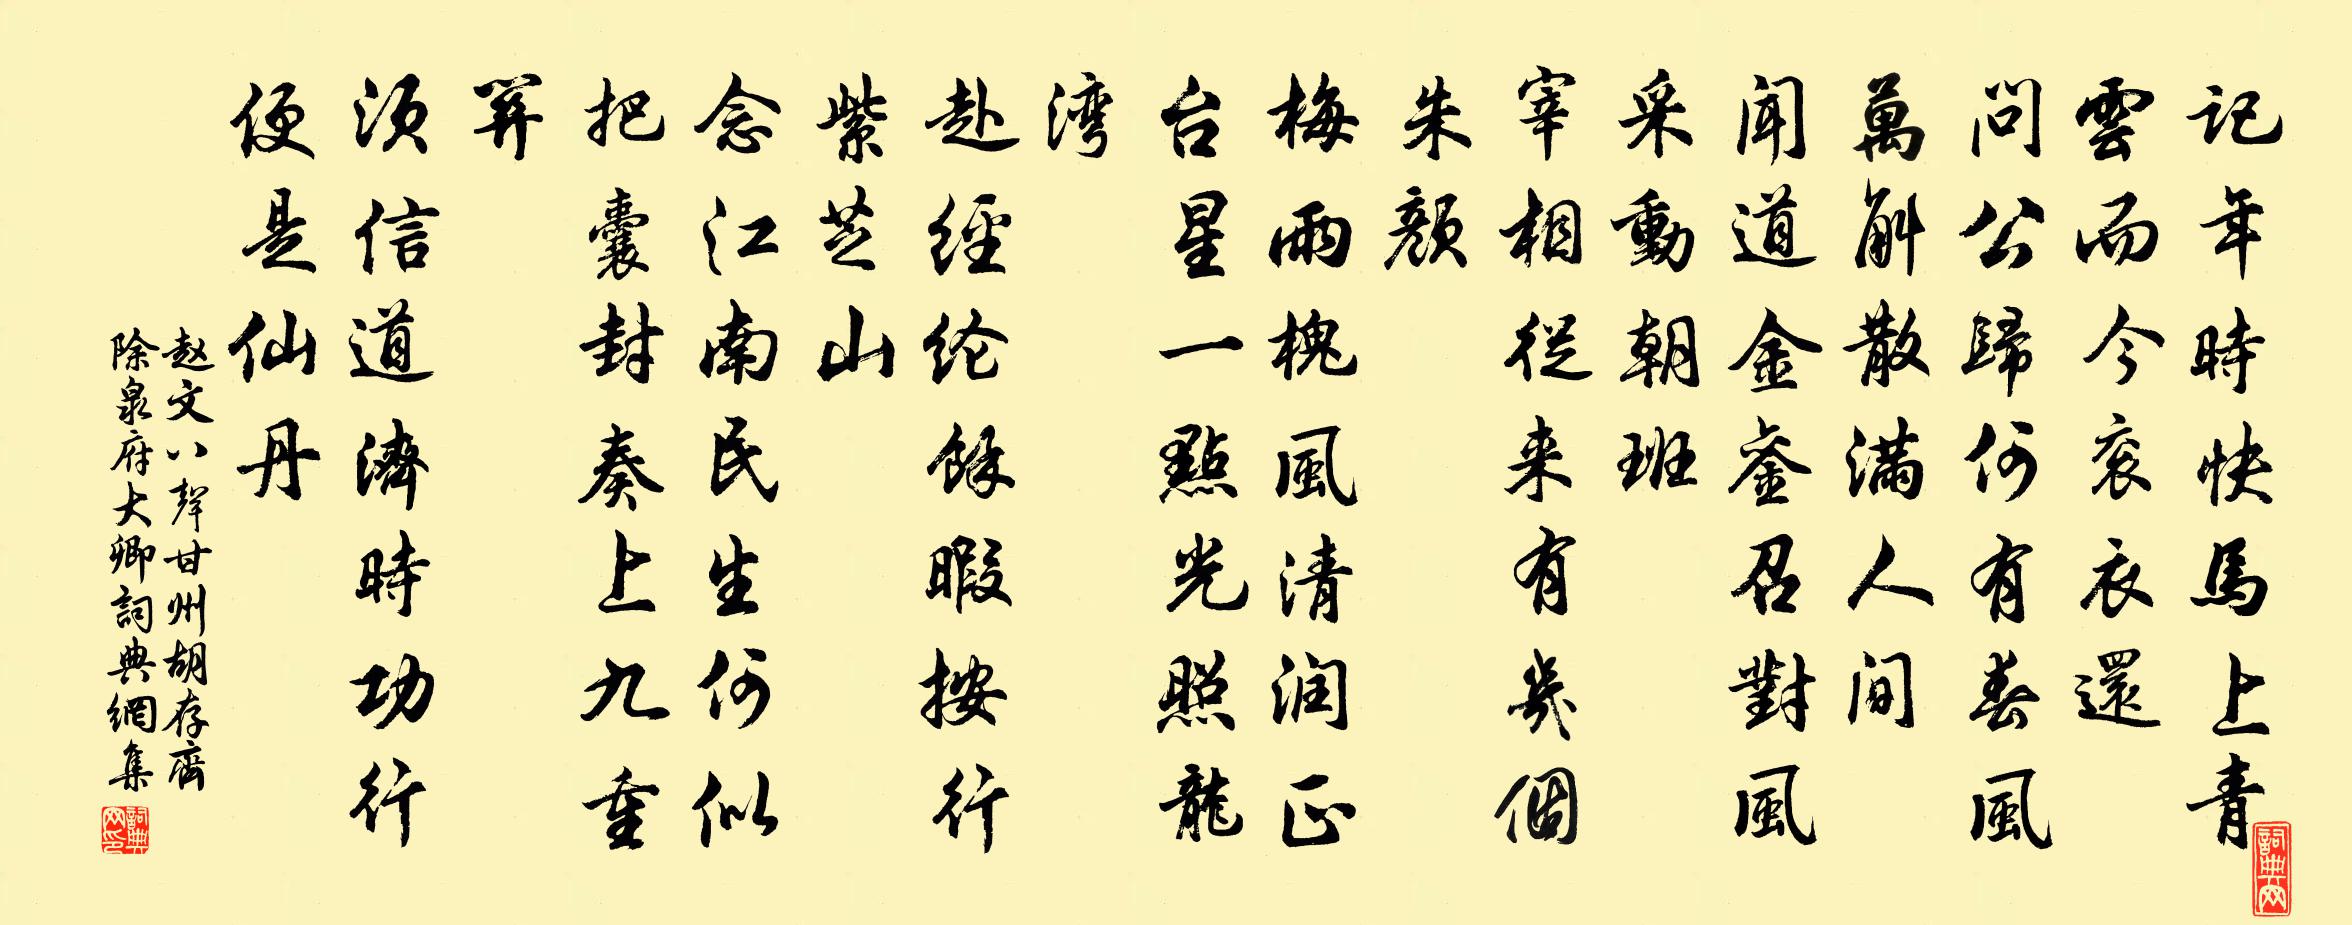 记年時快馬上青
雲而今衮衣還
問公歸何有春風
萬斛散滿人间
闻道金銮召對風
采動朝班
宰相從来有幾個
朱颜
梅雨槐風清润正
台星一點光照龍
湾
赴經纶餘暇按行
紫芝山
念江南民生何似
把囊封奏上九重
關
须信道濟時功行
便是仙丹
赵文八聲甘州胡存齊
除泉府大卿詞典網集
詞典网
詞典网印